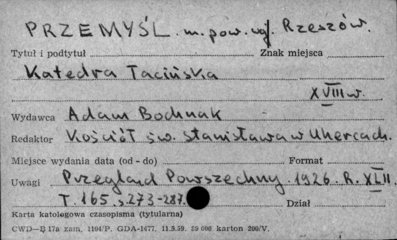 PRZEMYŚL m. pow. wój. Rzeszów.
Tytuł i podtytuł Znak miejsca
Katedra Łacińska
XVIII w.
Wydawca Adam Bochnak
Redaktor Kościół św. Stanisława w Uhercach.
Miejsce wydania data (od - do) Format
Uwagi Przegląd Powszechny. 1926. R. XLII.
T. 165, s 273-287. Dział
Karta katologowa czasopisma (tytularna)
17a zam. 1104/P. GDA-1477. 11.3.59. 29 000 karton 200/V.